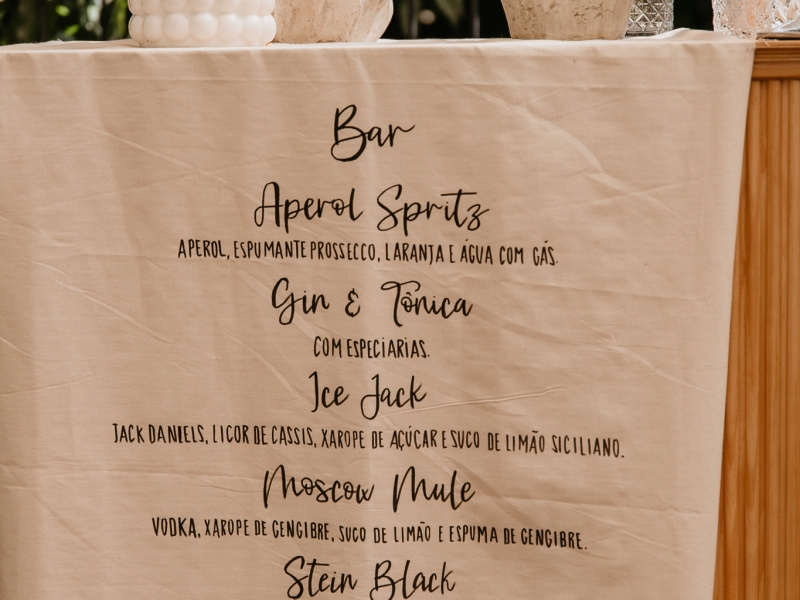 Bar
Aperol Spritz
APEROL, ESPUMANTE PROSSECCO, LARANJA E ÁGUA COM GÁS.
Gin & Tônica
COM ESPECIARIAS.
Ice Jack
JACK DANIELS, LICOR DE CASSIS, XAROPE DE AÇÚCAR E SUCO DE LIMÃO SICILIANO.
Moscow Mule
VODKA, XAROPE DE GENGIBRE, SUCO DE LIMÃO E ESPUMA DE GENGIBRE.
Stein Black